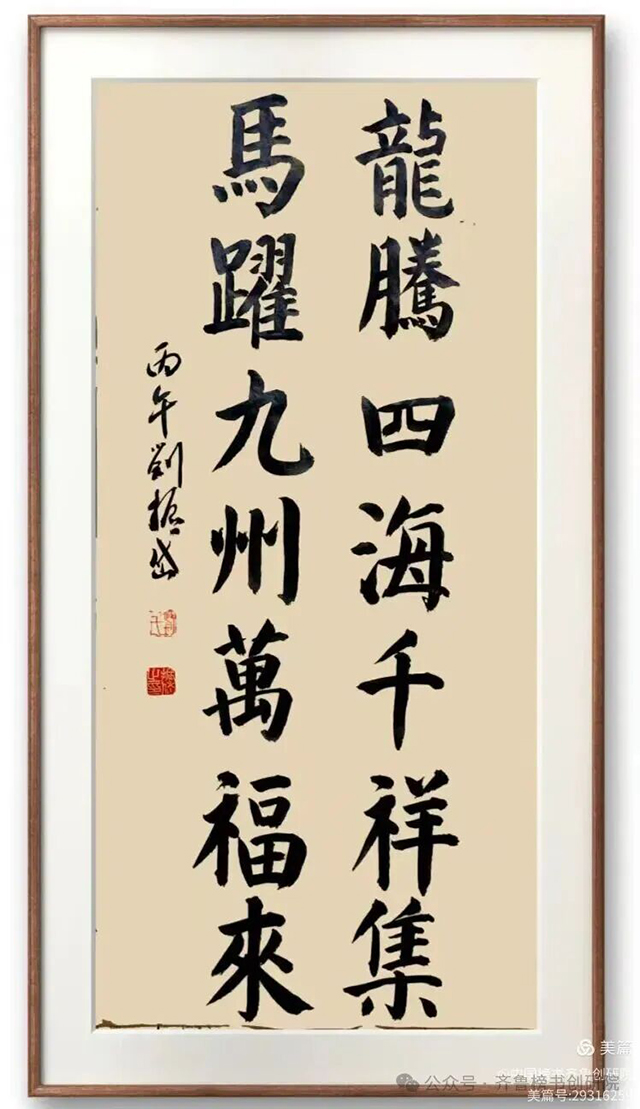 龍騰四海千祥集
馬躍九州萬福來
丙午劉振岱
美篇
公众号·齐鲁榜书创研院
美篇号:2931625